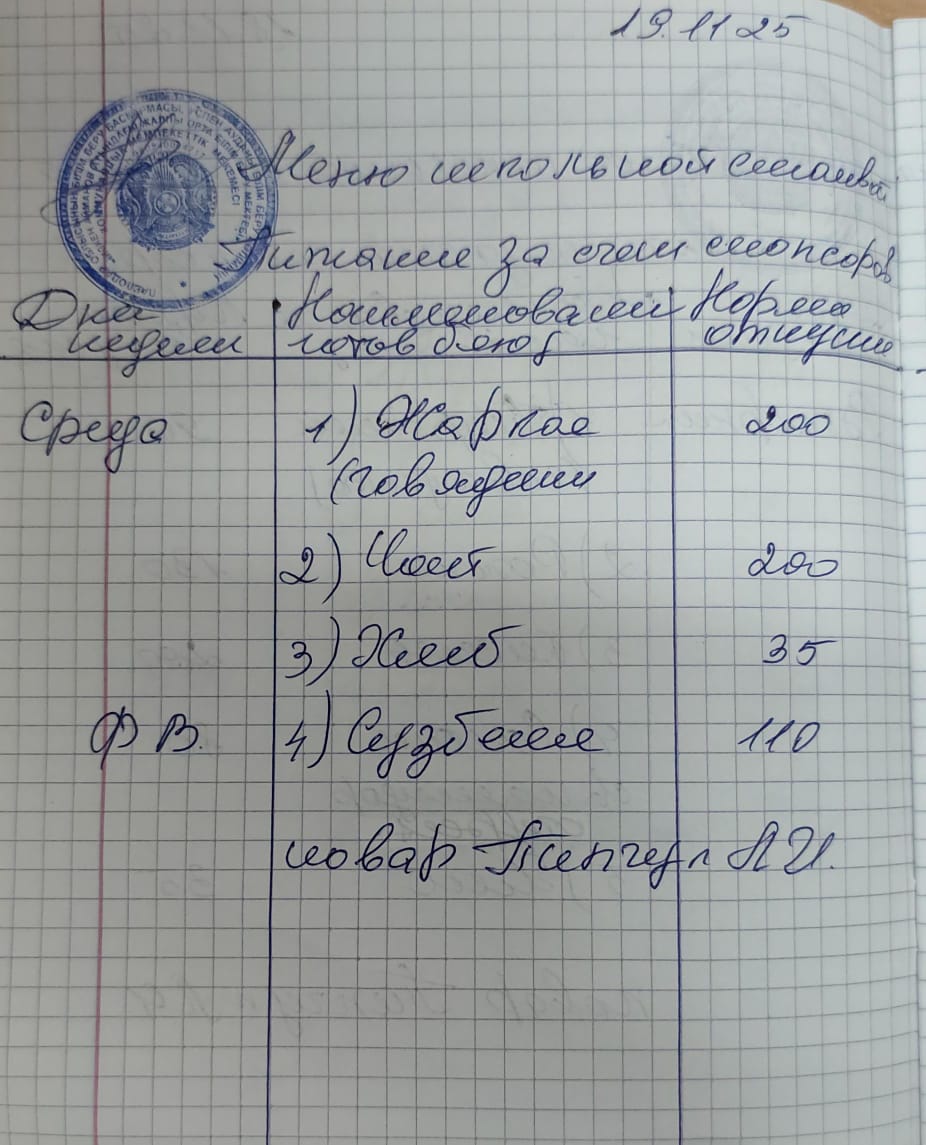 19.11 25
Меню школьной столовой
Питание за счет спонсоров
Дни недели
Наименование готов блюд
Норма отпуска
Среда
1) Жаркое 200
(говядина
2) Чай 200
3) Хлеб 35
ФВ. 4) 110
повар А И.